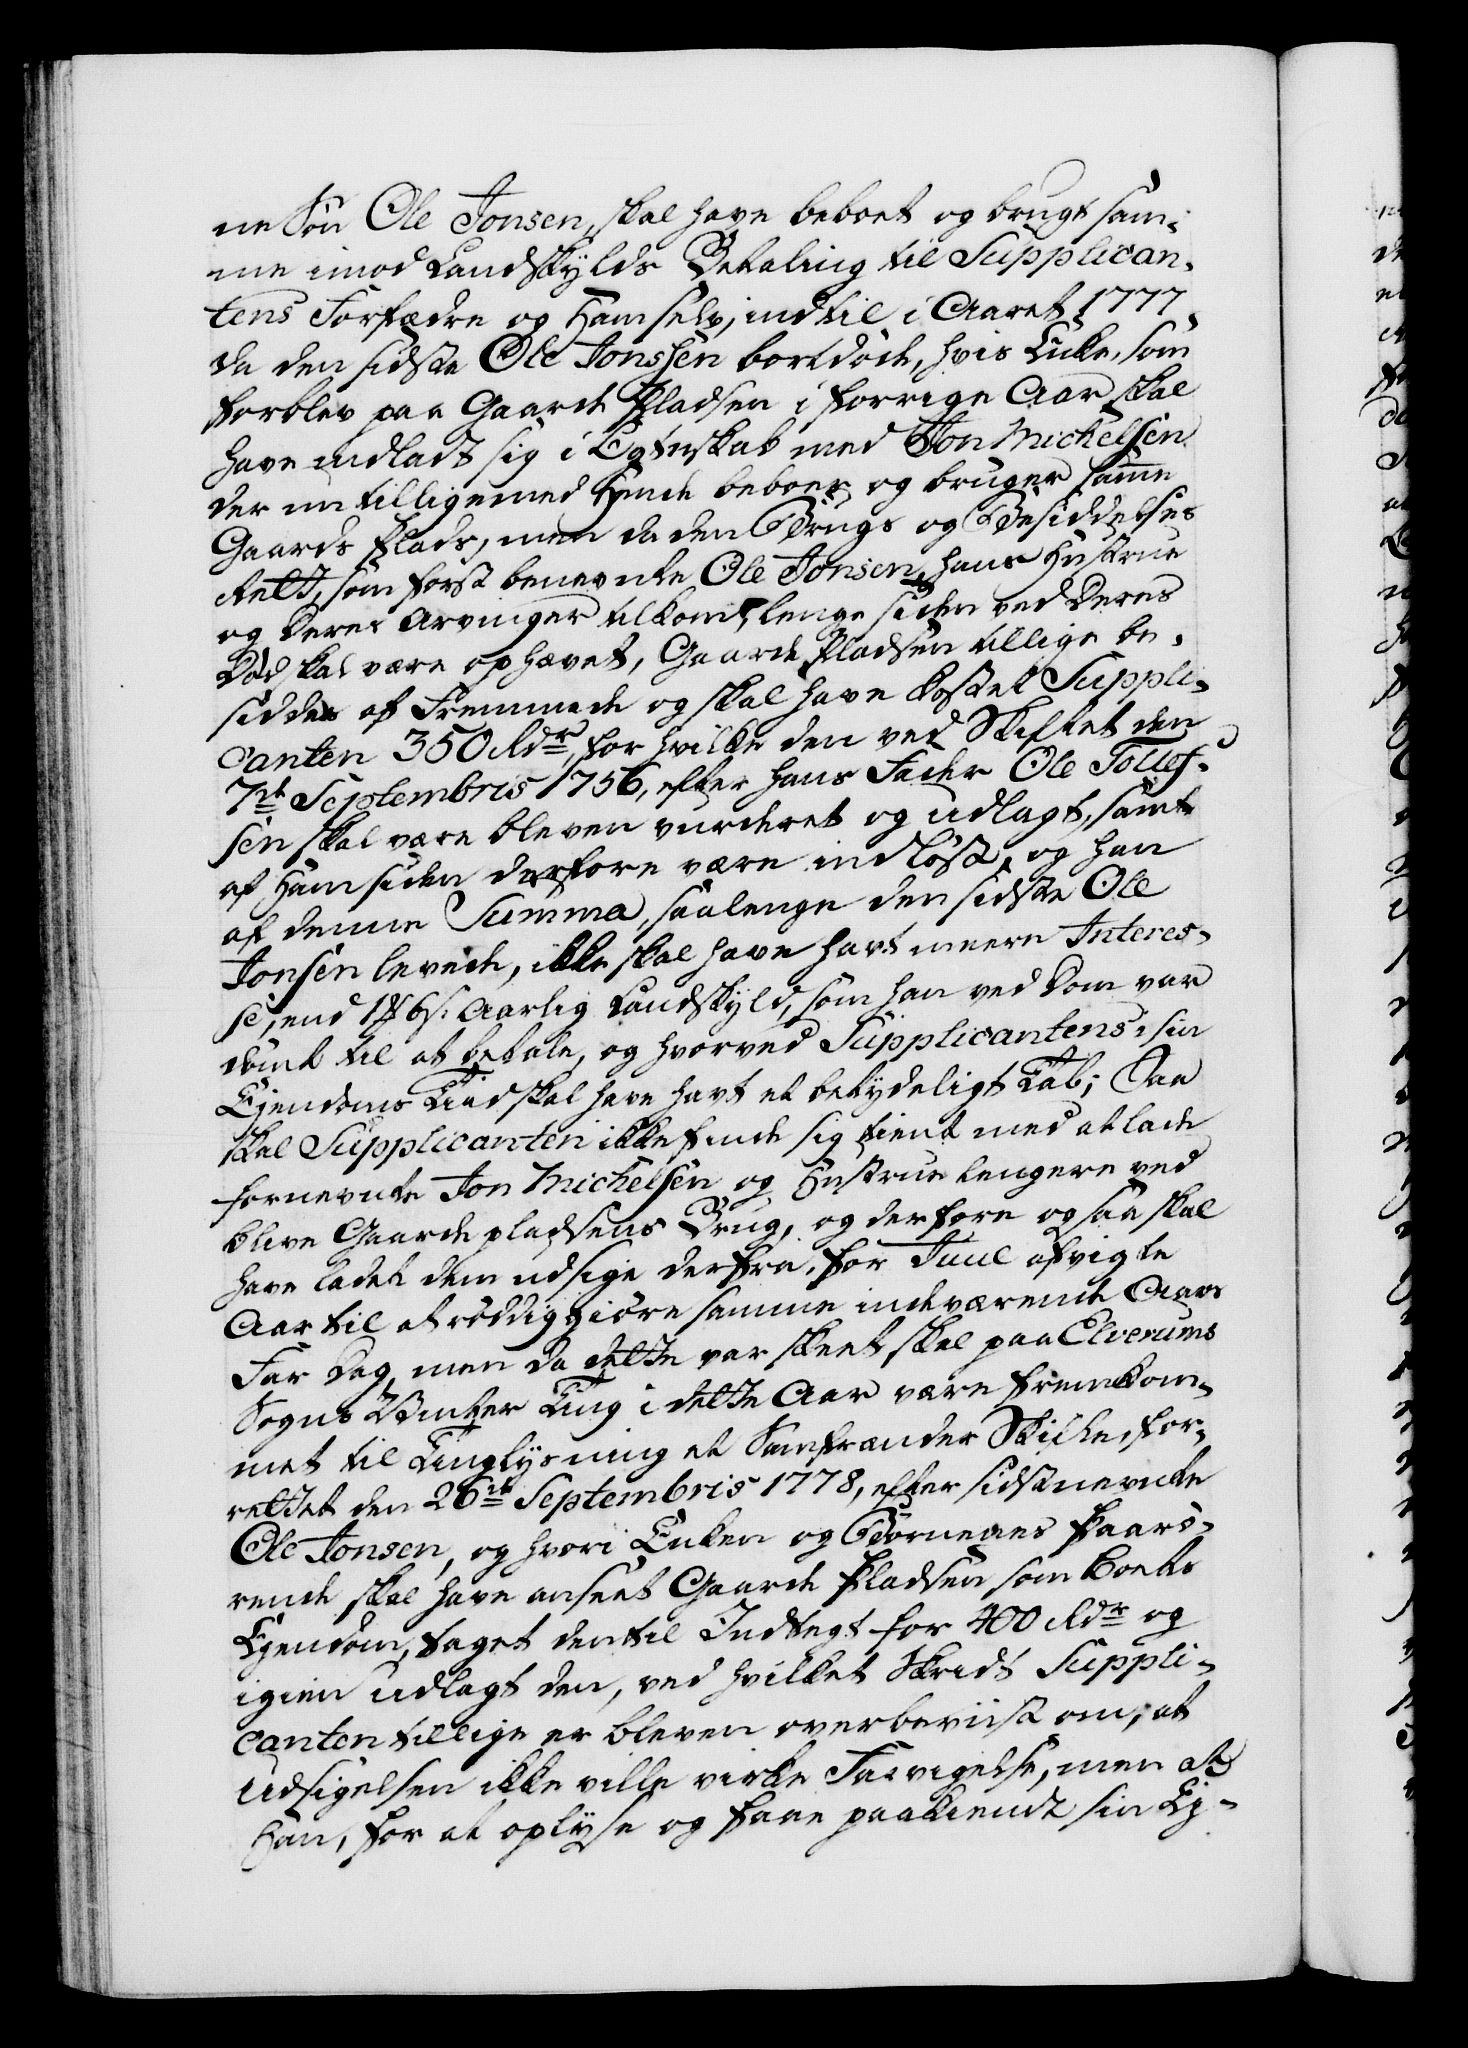 ne Søn Ole Jonsen, skal have beboet og brugt sam-
me imod Landskylds Betaling til Supplican-
tens Forfædre og Ham selv, indtil i Aaret 1777,
da den sidste Ole Jonssen bortdøde, hvis Enke, som
forblev paa Gaarde Pladsen i forrige Aar skal
have indladt sig i Egteskab med Jon Michelsen
der nu tilligemed Hende beboer og bruger samme
Gaards Plads, men da den Brugs og Besiddelses
Rett, som først benevnte Ole Jonsen, hans Hustrue
og Deres Arvinger tilkom, lenge siden ved Deres
Død skal være ophævet, Gaarde Pladsen tillige be-
siddes af Fremmede og skal have kostet Suppli-
canten 350 Rdr, for hvilke den ved Skiftet den
7de Septembris 1756, efter hans Fader Ole Tollef-
sen skal være bleven vurderet og udlagt, samt
af Ham siden derfore være indløst, og han
af denne Summa, saalenge den sidste Ole
Jonsen levede, ikke skal have havt meere Interes-
se, end 1 # 6 s. Aarlig Landskyld, som han ved Dom var
dømt til at betale, og hvorved Supplicanten i sin
Ejendoms Tiid skal have havt et betydeligt Tab; Saa
skal Supplicanten ikke finde sig tient med at lade
fornevnte Jon Michelsen og Hustrue lengere ved
blive Gaarde pladsens Brug, og derfore ogsaa skal
have ladet dem udsige derfra, for Juul afvigte
Aar til at røddiggiøre samme indeværende Aars
Far Dag, men da dette var skeet skal paa Elverums
Sogns Vinter Ting i dette Aar være fremkom-
met til Tinglysning et Samfrænder Skifte, for-
rettet den 26de Septembris 1778, efter sidstnevnte
Ole Jonsen, og hvori Enken og Børnenes Paarø-
rende skal have anseet Gaarde Pladsen som Boets
Ejendom, taget den til Indtegt for 400 Rdr og
igien udlagt den, ved hvilket Skridt Suppli-
canten tillige er bleven overbeviist om, at
Udsigelsen ikke ville virke Fravigelse, men at
Han, for at oplyse og faae paakiendt sin Ej-